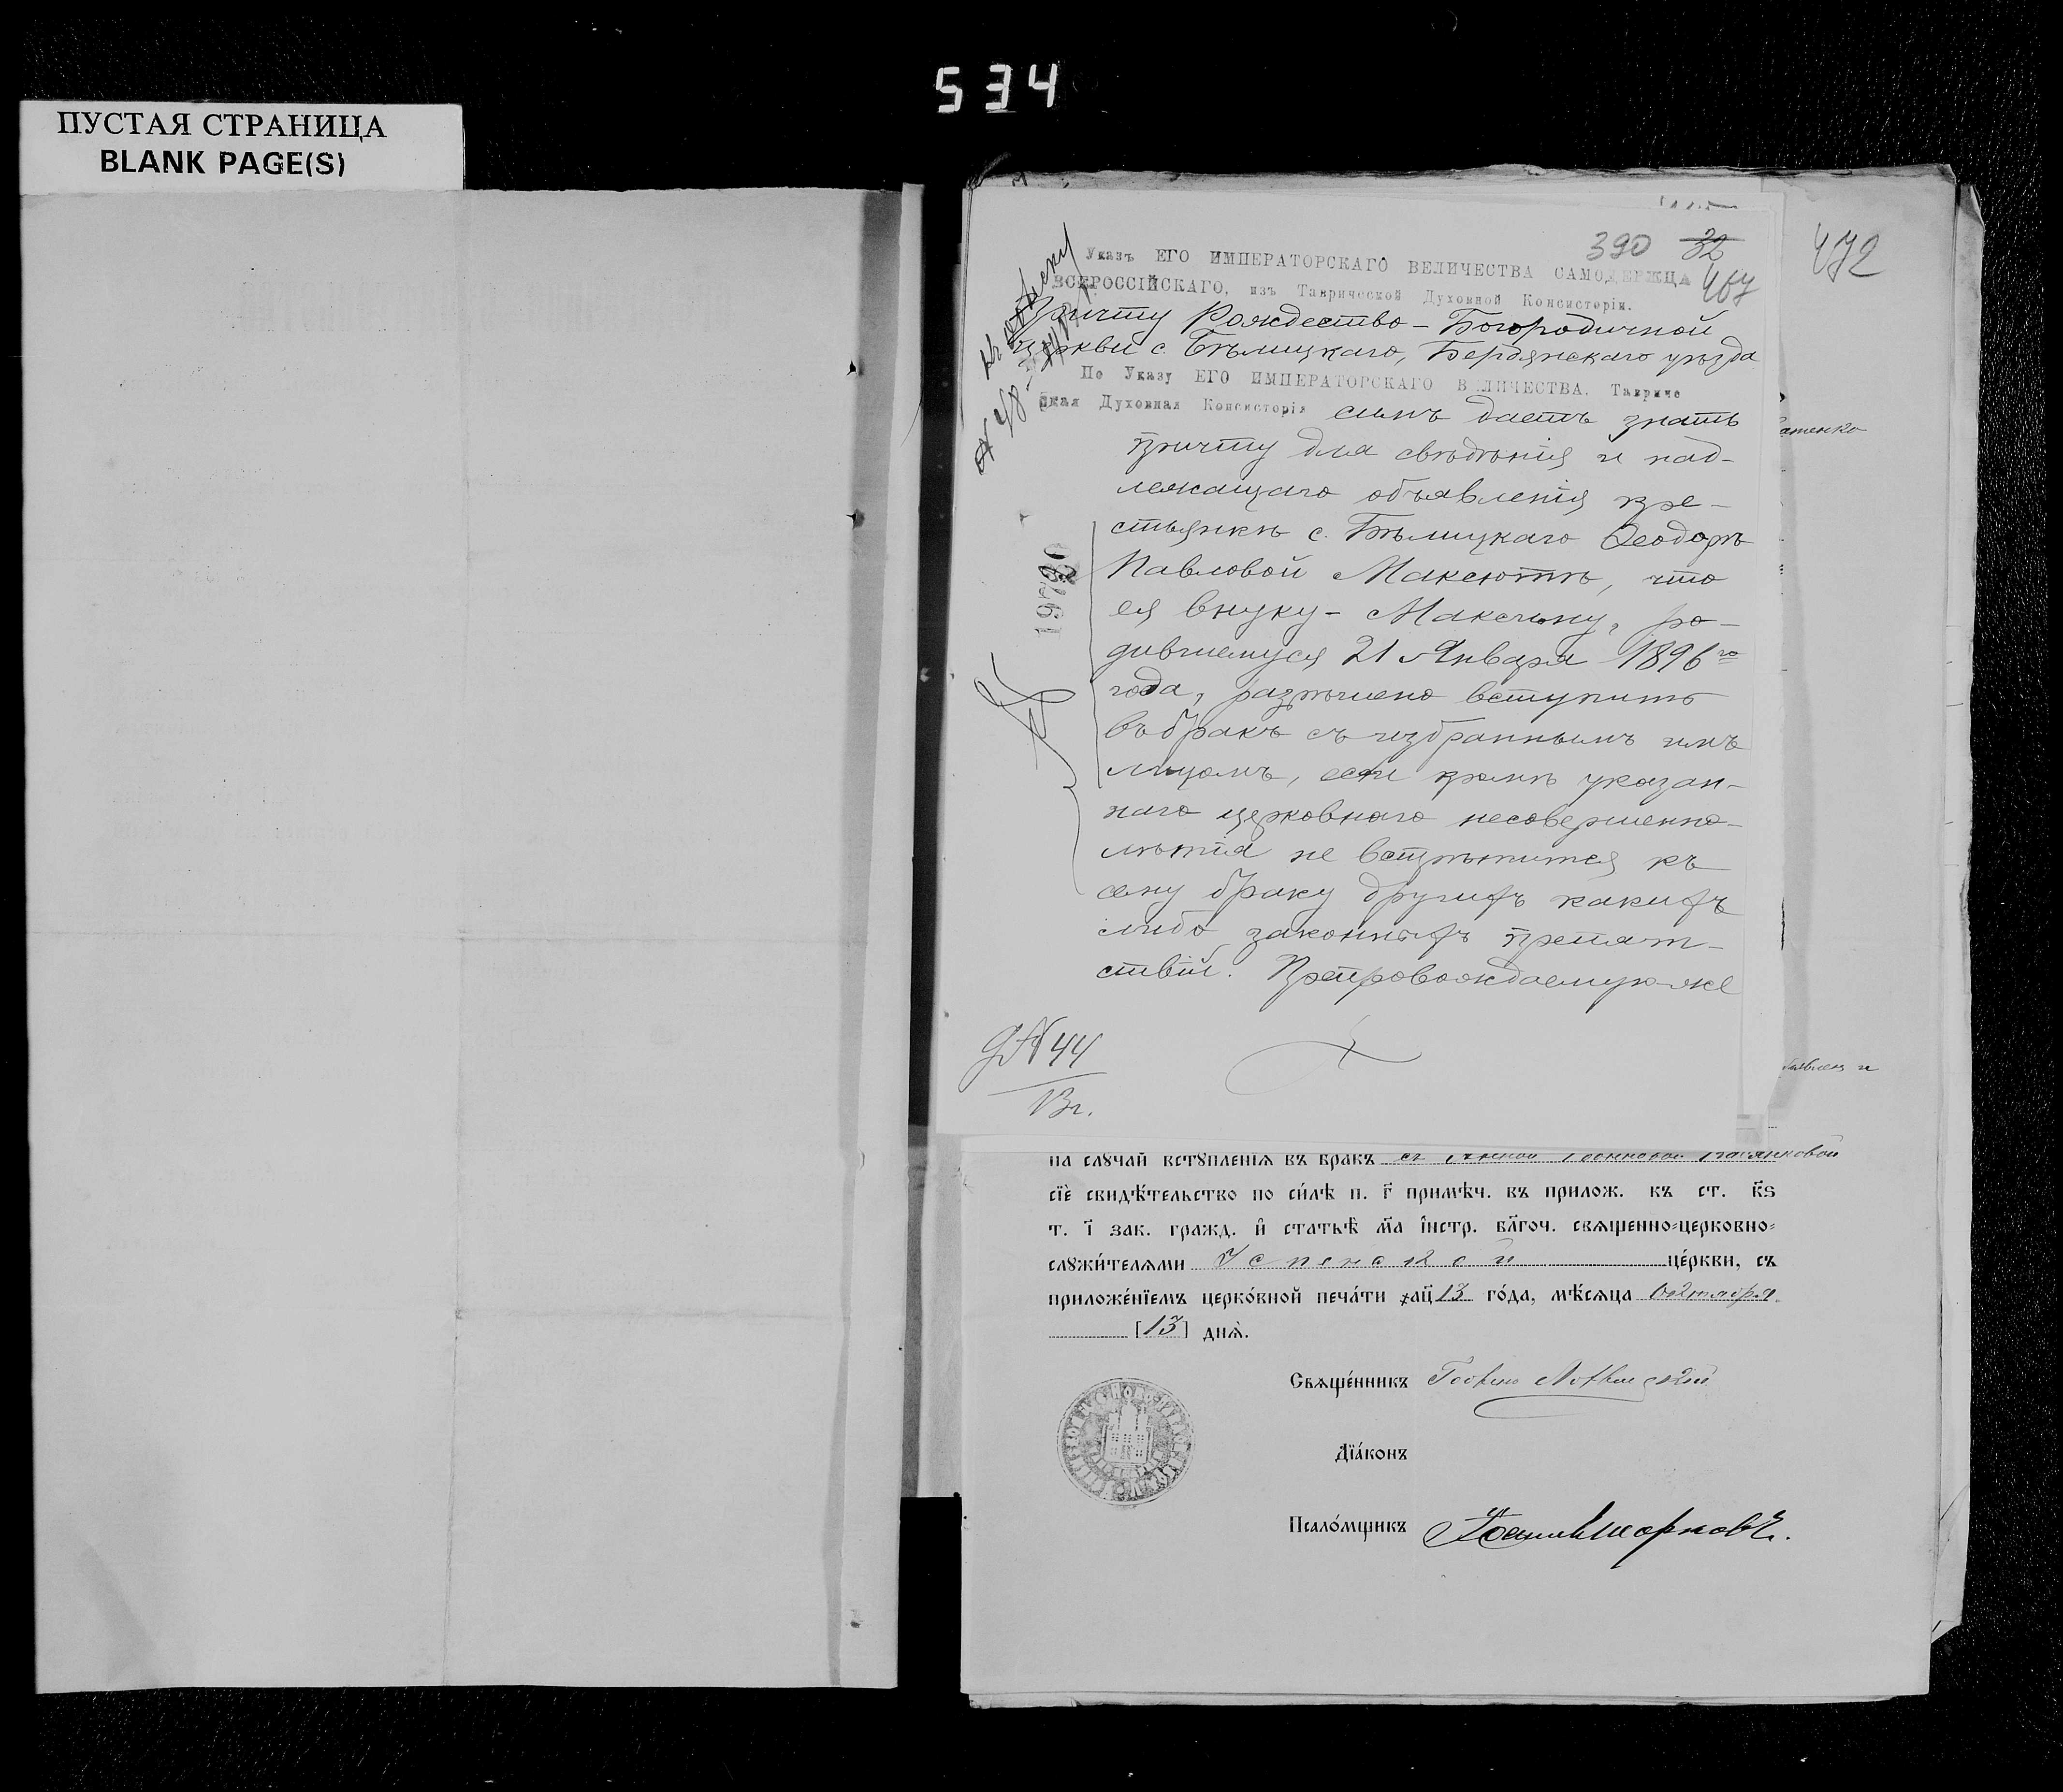 534
ПУСТАЯ СТРАНИЦА
BLANK PAGE(S)
472
390 32
467
Указъ ЕГО ИМПЕРАТОРСКАГО ВЕЛИЧЕСТВА САМОДЕРЖЦА
ВСЕРОССІЙСКАГО, изъ Таврической Духовной Консисторіи.
Причту Рождество-Богородичной
церкви с. Бѣлицкаго, Бердянскаго уѣзда
По Указу ЕГО ИМПЕРАТОРСКАГО ВЕЛИЧЕСТВА. Тавриче
ская Духовная Консисторія симъ даетъ знать
причту для свѣдѣнія и над-
лежащаго объявленія кре-
стьянкѣ с. Бѣлицкаго Ѳеодорѣ
Павловой Максютѣ, что
ея внуку - Максиму, ро-
дившемуся 21 Января 1896го
года, разрѣшено вступить
въ бракъ съ избраннымъ имъ
лицомъ, если кромѣ указан-
наго церковнаго несовершенно-
лѣтія не встрѣтится къ
сему браку другихъ какихъ
либо законныхъ препят-
ствій. Препровождаемую же
19780
№ 44
13 г.
атенко
на слꙋчай встꙋпленїѧ въ бракъ съ Анной
сїѐ свидѣ́тельство по си́лѣ п. г҃ примѣч. въ прилож. къ ст. к҃ѕ
т. і҃ зак. гражд. и҆ статьѣ̀ м҃а і҆нстр. бл҃гоч. свѧщенно-церковно-
слꙋжи́телѧми Успенской це́ркви, съ
приложе́нїемъ церко́вной печа́ти ҂ац҃ 13 го́да, мѣ́сѧца Октября
[13] днѧ̀.
Свѧще́нникъ Георгій
Дїа́конъ
Псало́мщикъ